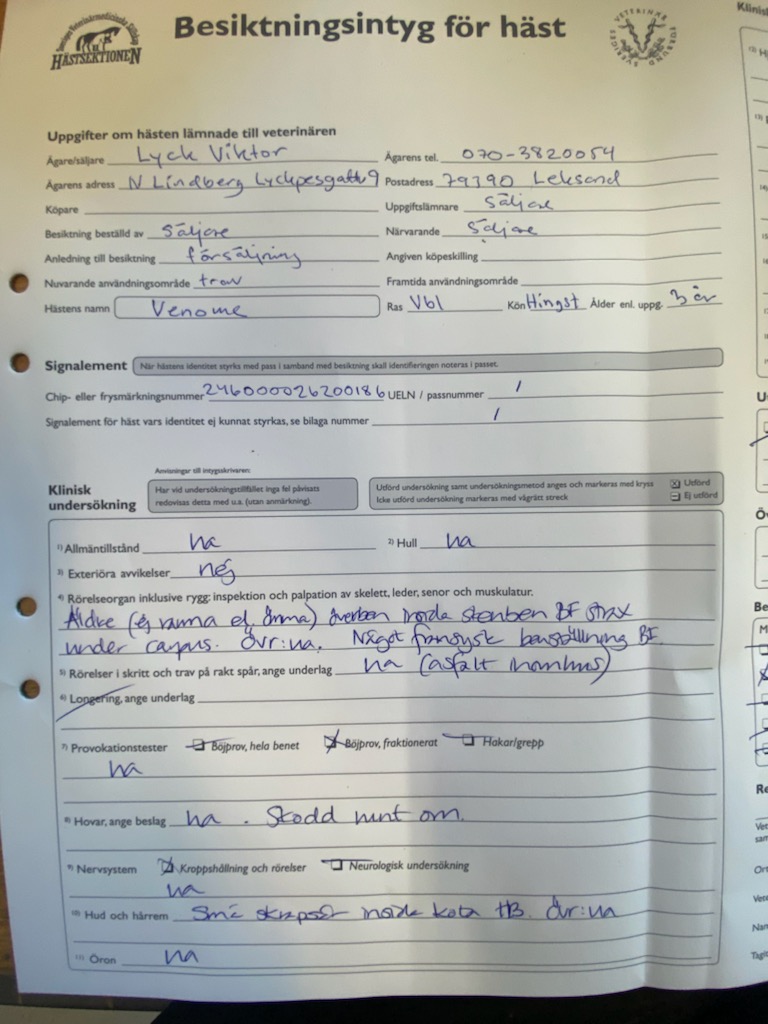 Svenska Veterinärmedicinska Sällskap
HÄSTSEKTIONEN
Besiktningsintyg för häst
SVERIGES VETERINÄRFÖRBUND
Uppgifter om hästen lämnade till veterinären
Ägare/säljare Lyck Viktor Ägarens tel. 070-3820054
Ägarens adress N Lindberg 9 Postadress 79390 Leksand
Köpare Uppgiftslämnare Säljare
Besiktning beställd av Säljare Närvarande Säljare
Anledning till besiktning försäljning Angiven köpeskilling
Nuvarande användningsområde trav Framtida användningsområde
Hästens namn Venome Ras Vbl Kön Hingst Ålder enl. uppg. 3 år
Signalement När hästens identitet styrks med pass i samband med besiktning skall identifieringen noteras i passet.
Chip- eller frysmärkningsnummer 246000026200186 UELN / passnummer /
Signalement för häst vars identitet ej kunnat styrkas, se bilaga nummer /
Anvisningar till intygsskrivaren:
Klinisk undersökning
Har vid undersökningstillfället inga fel påvisats
redovisas detta med u.a. (utan anmärkning).
Utförd undersökning samt undersökningsmetod anges och markeras med kryss Utförd
Icke utförd undersökning markeras med vågrätt streck Ej utförd
1) Allmäntillstånd ua 2) Hull ua
3) Exteriöra avvikelser nej
4) Rörelseorgan inklusive rygg; inspektion och palpation av skelett, leder, senor och muskulatur.
Äldre (ej varma el. ömma) överben insida skenben BF strax
under carpus. Övr: ua. Något fransysk benställning BF.
5) Rörelser i skritt och trav på rakt spår, ange underlag ua (asfalt inomhus)
6) Longering, ange underlag
7) Provokationstester Böjprov, hela benet Böjprov, fraktionerat Hakar/grepp
ua
8) Hovar, ange beslag ua. Skodd runt om.
9) Nervsystem Kroppshållning och rörelser Neurologisk undersökning
ua
10) Hud och hårrem Små skrapsår insida kota HB. Övr: ua
11) Öron ua